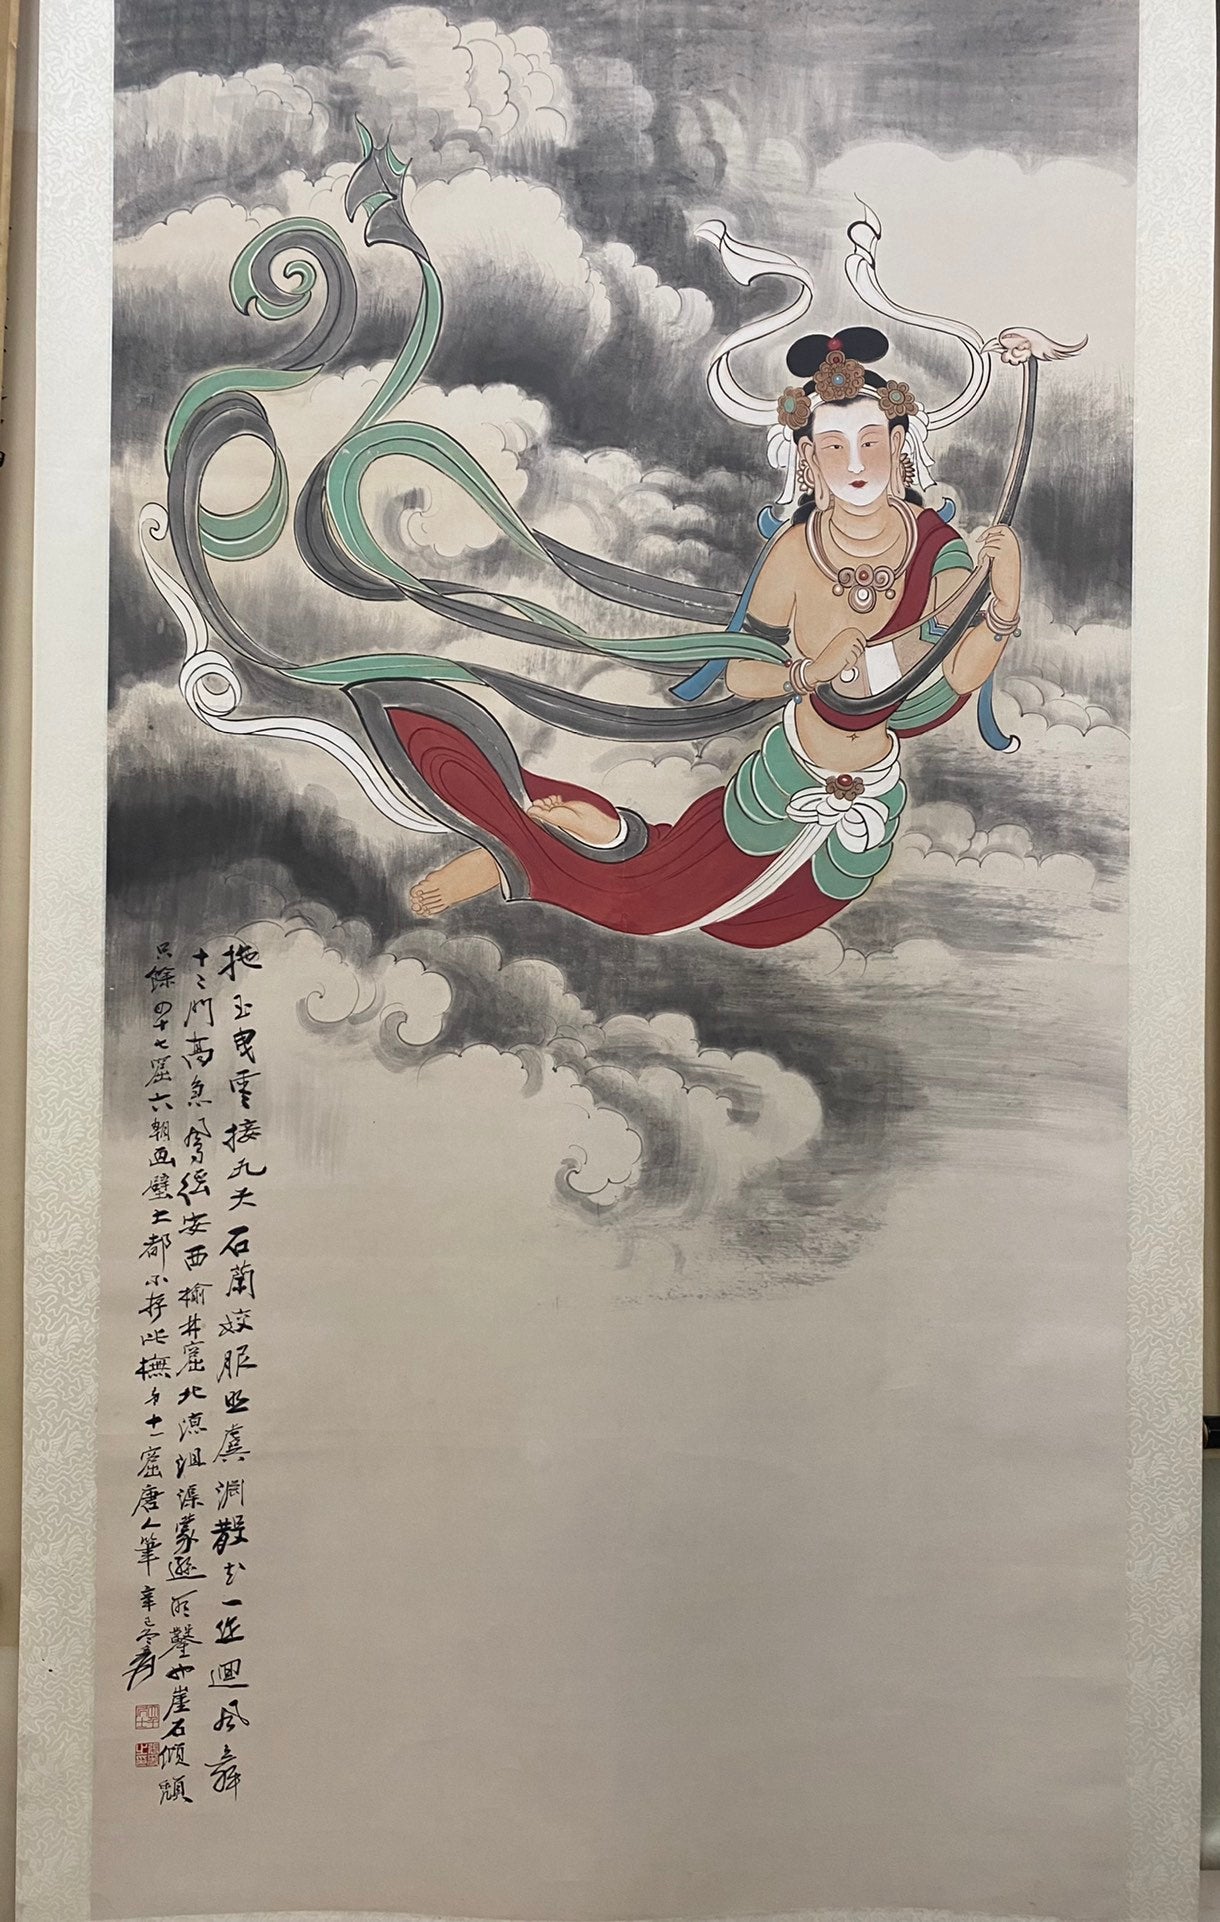 拖玉曳云接九天石蘭姣服照虞淵散花一逕迴風舞
十二門高急管絃安西榆林窟北涼沮渠蒙遜所鑿也崖石傾頹
只餘四十七窟六朝画壁土都不存此橅第十一窟唐人筆辛巳冬爰